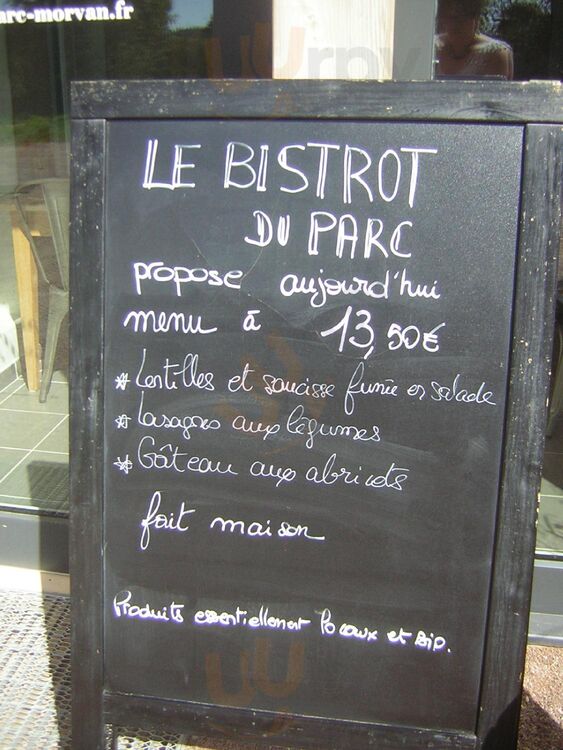 arc-morvan.fr
LE BISTROT
DU PARC
propose aujourd'hui
menu à 13,50€
* Lentilles et saucisse fumée en salade
* Lasagnes aux légumes
* Gâteau aux abricots
fait maison
Produits essentiellement locaux et BIO.